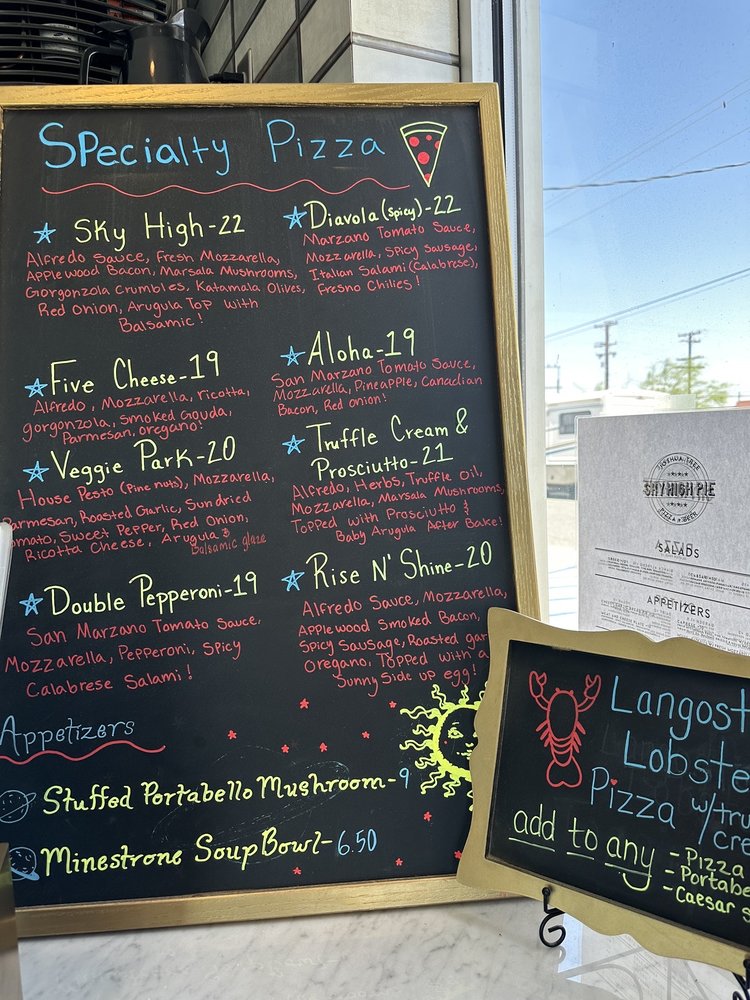 Specialty Pizza
Sky High-22
Alfredo Sauce, Fresh Mozzarella,
Applewood Bacon, Marsala Mushrooms,
Gorgonzola Crumbles, Katamala Olives,
Red Onion, Arugula Top with
Balsamic!
Diavola (spicy)-22
Marzano Tomato Sauce,
Mozzarella, Spicy Sausage,
Italian Salami (Calabrese),
Fresno Chilies!
Five Cheese-19
Alfredo, Mozzarella, ricotta,
gorgonzola, smoked Gouda,
Parmesan, oregano!
Aloha-19
San Marzano Tomato Sauce,
Mozzarella, Pineapple, Canadian
Bacon, Red Onion!
Veggie Park-20
House Pesto (Pine nuts), Mozzarella,
Parmesan, Roasted Garlic, Sundried
omato, Sweet Pepper, Red Onion,
Ricotta Cheese, Arugula &
Balsamic glaze
Truffle Cream &
Prosciutto-21
Alfredo, Herbs, Truffle Oil,
Mozzarella, Marsala Mushrooms,
Topped with Prosciutto &
Baby Arugula After Bake!
Double Pepperoni-19
San Marzano Tomato Sauce,
Mozzarella, Pepperoni, Spicy
Calabrese Salami!
Rise N' Shine-20
Alfredo Sauce, Mozzarella,
Applewood Smoked Bacon,
Spicy Sausage, Roasted gar
Oregano, Topped with a
Sunny Side up egg!
Appetizers
Stuffed Portabello Mushroom-9
Minestrone Soup Bowl-6.50
JOSHUA TREE
SKY HIGH PIE
PIZZA N' BEER
SALADS
APPETIZERS
Langost
Lobste
Pizza w/tru
cre
add to any
-Pizza
-Portabe
-Caesar s